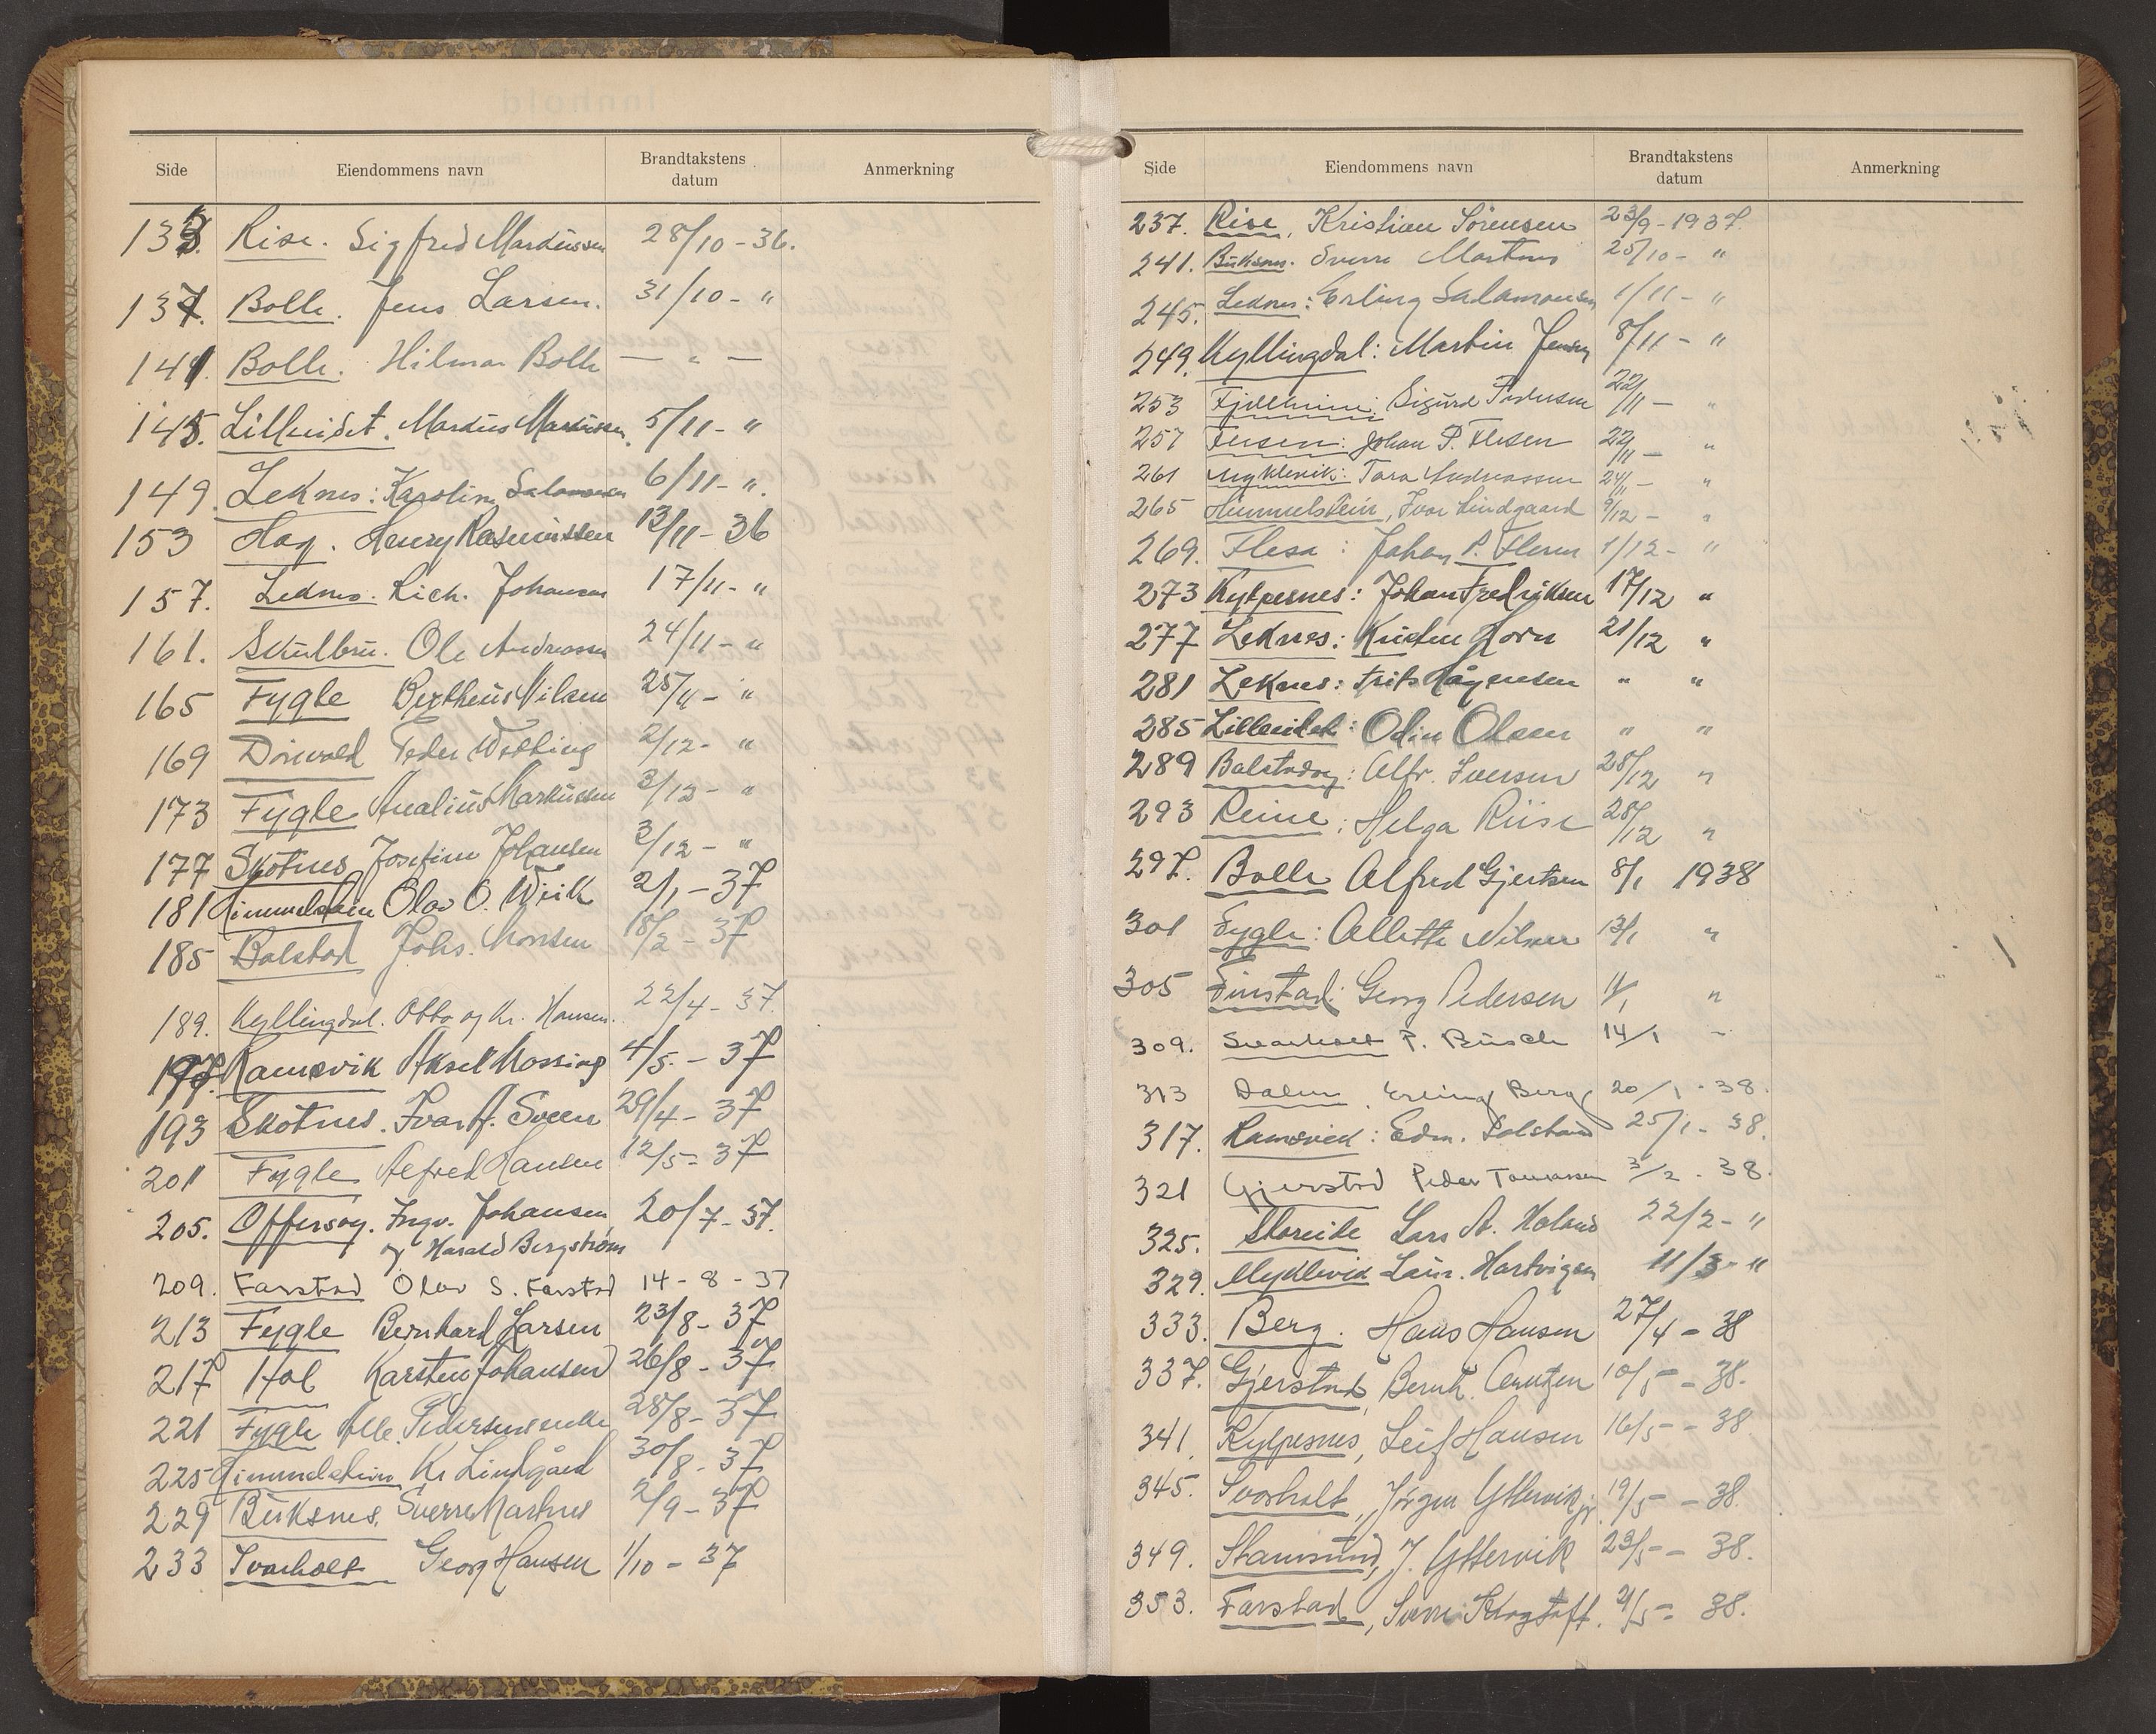 Side Eiendommens navn Brandtakstens datum Anmerkning
133. Rise. Sigfred Markussen 28/10-36.
137. Bolle. Jens Larsen. 31/10- "
141. Bolle. Hilmar Bolle — " —
145. Lilleeidet. Markus Markussen. 5/11- "
149. Leknes: Karoline Salomonsen 6/11- ".
153 Hag. Henry Rasmussen 13/11-36
157. Leknes. Rich. Johansen 17/11- "
161. Skulbru. Ole Andreassen 24/11- "
165 Fygle Bertheus Nilsen 25/11- "
169 Peder Wolling 2/12- "
173 Fygle Analius Markussen 3/12- "
177 Skotnes Josefine Johansen 3/12- "
181 Himmelstein Olav O. Wiik 2/1-37
185 Balstad Johs. Monsen 18/2-37
189. Kyllingdal. Otto og Kr. Hansen. 22/4-37.
197. Ramsvik Aksel Mossing 4/5.-37
193 Skotnes. Ivar A. Sveen 29/4-37
201 Fygle Alfred Hansen 12/5-37
205. Offersøy. Ingv. Johansen 20/7-37.
og Harald Bergstrøm
209. Farstad Olav S. Farstad 14-8-37
213 Fygle Bernhard Larsen 23/8-37
217 Hol Karsten Johansen 26/8-37
221 Fygle Alle. Pedersen 28/8-37
225 Himmelstein Kr Lindgård 30/8-37
229 Buksnes. Sverre Martnes 2/9-37
233 Svarholt Georg Hansen 1/10-37
Side Eiendommens navn Brandtakstens datum Anmerkning
237. Rise, Kristian Sörensen 23/9-1937.
241. Buksnes. Sverre Martnes 25/10- "
245. Leknes: Erling Salamonsen 1/11- "
249. Kyllingdal: Martin Jensen 8/11- "
253 Sigurd Pedersen 22/11- "
257 Flesen: Johan P. Flesen 22/11- "
261 Myklevik: Tora Andreassen 24/11- "
265 Himmelstein, Ivar Lindgaard 9/12- "
269. Flesa: Johan P. Flesen 1/12- "
273 Kylpesnes: Johan Fredriksen 17/12 "
277 Leknes: Kirsten Horn 21/12 "
281 Leknes: Frits Hågensen " "
285 Lilleeidet: Odin Olsen " "
289 Balstadøy: Alfr. Iversen 28/12 "
293 Reine: Helga Riise 28/12 "
297. Bolle Alfred Gjertsen 8/1 1938
301 Fygle: Allette Nilsen 13/1 "
305 Finstad: Georg Pedersen 14/1 "
309. Svarholt P. Busch 14/1 "
313 Dalen, Erling Berg 20/1-38.
317. Ramsvik: Edm. Solstad 25/1-38.
321 Gjerstad Peder Tomassen 3/2-38.
325. Storeide Lars A. Holand 22/2- "
329. Myklevik Laur. Hartvigsen 11/3- "
333. Berg. Hans Hansen 27/4-38
337. Gjerstad, Bernh. Arntzen 10/5-38.
341. Kylpesnes, Leif Hansen 16/5-38.
345. Svarholt, Jørgen Yttervik jr. 19/5-38.
349. Stamsund, J. Yttervik 23/5-38.
353. Farstad, Sverre 21/5-38.